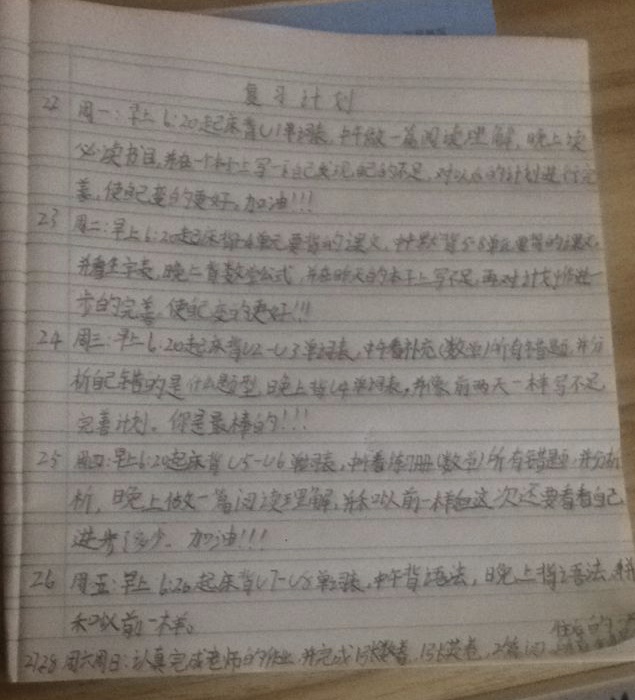 复习计划
22 周一：早上6:20起床背U1单词表，中午做一篇阅读理解，晚上读
必读书目，并在一个本上写一下自己发现自己的不足，对以后的计划进行完
善，使自己变的更好，加油!!!
23 周二：早上6:20起床背 单元要背的课文，中午 背5-8单元要背的课文，
并看生字表，晚上背数学公式，并在昨天的本子上写不足，再对计划作进一
步的完善，使自己变的更好!!!
24 周三：早上6:20起床背U2-U3单词表，中午看补充(数学)所有错题，并分
析自己错的是什么题型，晚上背U4单词表，并像前两天一样写不足，
完善计划。你是最棒的!!!
25 周四：早上6:20起床背U5-U6单词表，中午看练习册(数学)所有错题，并分析
析，晚上做一篇阅读理解，并和以前一样但这次还要看看自己
进步 多少。加油!!!
26 周五：早上6:20起床背U7-U8单词表，中午背语法，晚上背语法，并
和以前一样。
27/28 周六周日：认真完成老师的作业，并完成1张数卷，1张英卷，2篇阅